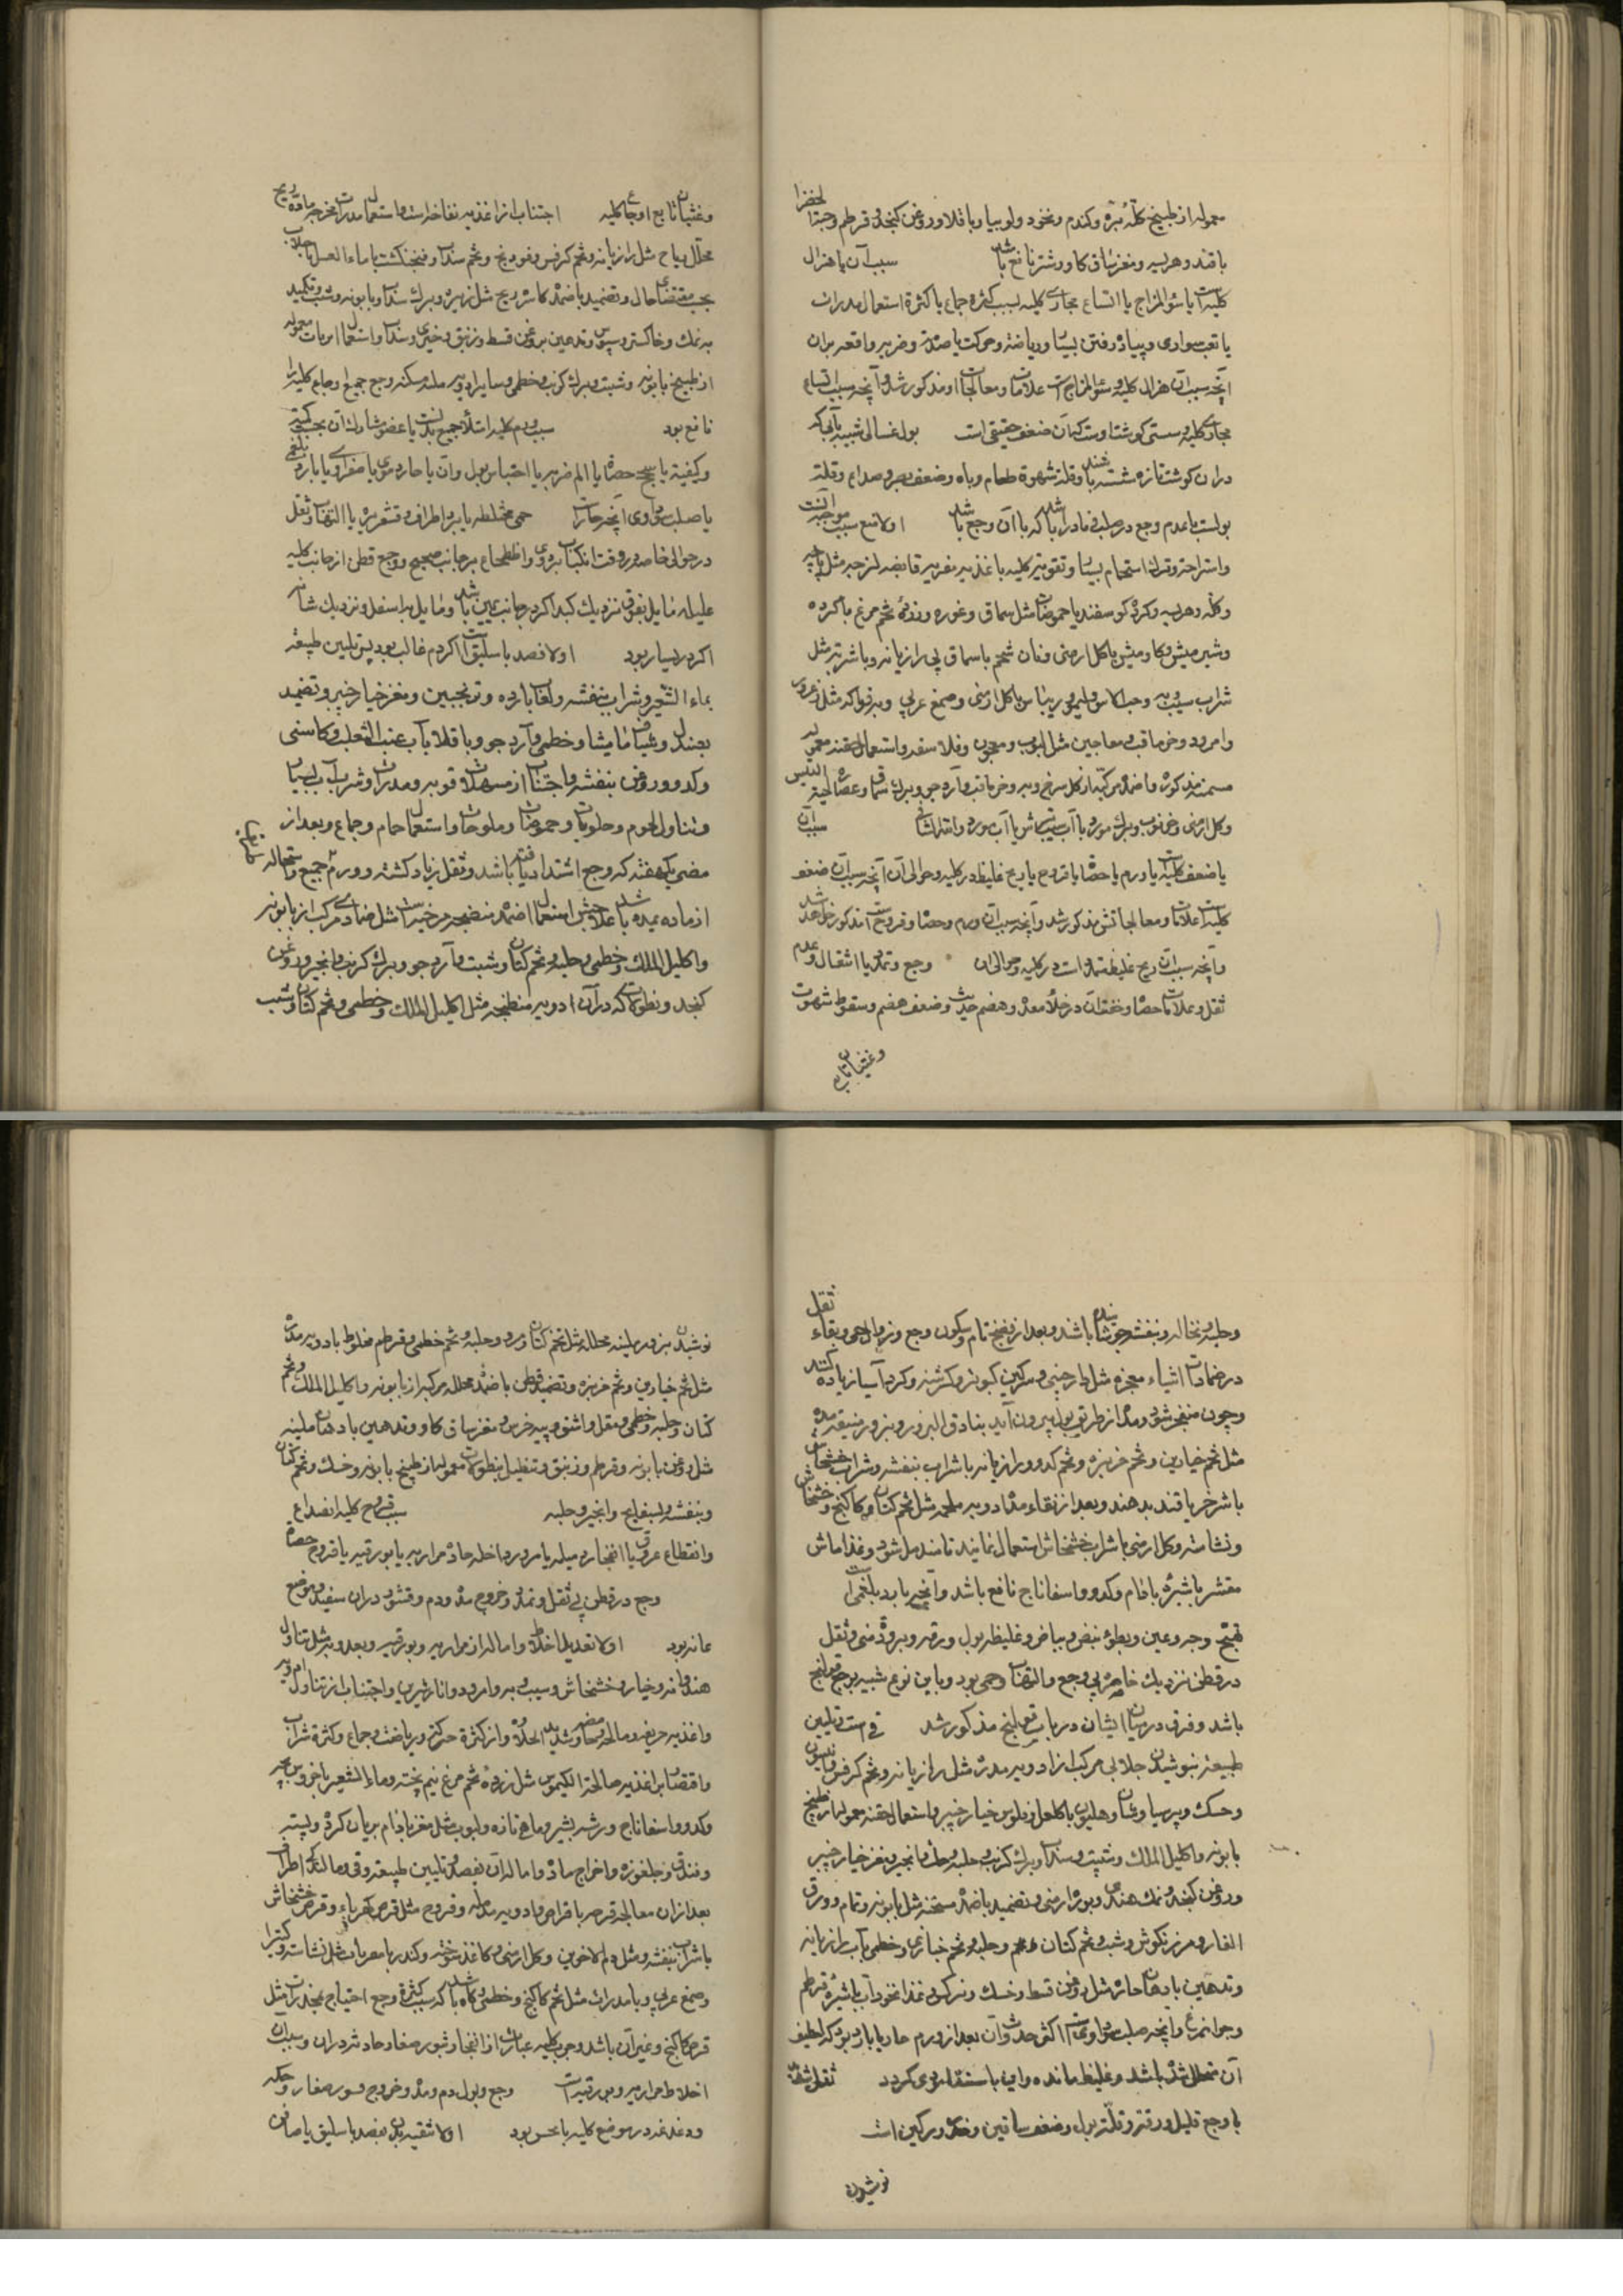 معموله از طبیخ کله بره و کندم و نخود و لوبیا و باقلا و روغن کنجد و قرطم و حبة الخضرا
با قند و هریسه و مغز ساق کاو و شتر نافع باشد سبب آن یا هزال
کلیه است یا سوء المزاج یا اتساع مجاری کلیه بسبب کثرة جماع یا کثرة استعمال مدرات
یا تعب سواری و پیاده رفتن بسیار و ریاضة و حرکت یا صدمه و ضربه واقعه بران
آنچه سبب آن هزال کلیه و سوء المزاج است علامات و معالجات او مذکور شد و آنچه سبب اتساع
مجاری کلیه و سستی کوشت اوست که آن ضعف حقیقی است بول غسالی شبیه بآبی که
دران کوشت تازه شسته باشند و قلة شهوة طعام و باه و ضعف بصر و صداع و قلة
بولست با عدم وجع در صلب نادرا باشد که با آن وجع باشد اولا منع سبب موجبه آنست
و استراحة و ترک استحمام بسیار و تقویة کلیه باغذیه مغریه قابضه لزجه مثل پاچه
و کله و هریسه و کرده کوسفند با حموضات مثل سماق و غوره و زرده تخم مرغ با کرده
و شیر میش و کاو میش با کل ارمنی و نان شحم با سماق بی رازیانه و با شربة مثل
شراب سیب و به و حب الاس و لیمو و ریباس با کل ارمنی و صمغ عربی و بر فواکه مثل زعرور
و امرود و خرما قسب و معاجین مثل لبوب و معجون و فلاسفه و استعمال حقنه معموله
مسمنه مذکوره و اضمده مرکبه از کل سرخ و به و خرما قسب و آرد جو و برک سماق و عصاره لحیة التیس
و کل ارمنی و خرنوب و برک مورد با آب سیب ترش یا آب مورد و امثال انها سبب آن
یا ضعف کلیه است یا ورم یا حصاة یا قروح یا ریح غلیظ در کلیه و حوالی آن آنچه سبب آن ضعف
کلیه است علامات و معالجاتش مذکور شد و آنچه سبب آن ورم و حصاة و قروح است مذکور خواهد شد
و آنچه سبب آن ریح غلیظ ممدد است در کلیه و حوالی آن وجع و تمدد با انتقال و عدم
ثقل و علامات حصاة و خفة آن در خلاء معده و هضم جید و ضعف هضم و سقوط شهوت
و غثیان تابع
و غثیان تابع اوجاع کلیه اجتناب از اغذیه نفاخه است و استعمال مدرات مخرجه ماده ریح
محلل ریاح مثل رازیانه و تخم کرفس و فودنج و تخم سداب و فنجنکشت با ماء العسل یا جلاب
بحسب مقتضای حال و تضمید باضمده کاسر ریح مثل زیره و برک سداب و بابونه و شبت و تکمید
به نمک و خاکستر و سبوس و تدهین بروغن قسط و زنبق و خیری و سداب و استعمال ابزنات معموله
از طبیخ بابونه و شبت و برک کرنب و خطمی و سایر ادویه ملینه مسکنه وجع جمیع اوجاع کلیه را
نافع بود سبب ورم کلیه امتلاء جمیع بدنست یا عضو مشارک آن بحسب کمیة
و کیفیة یا سحج حصاة یا الم ضربه یا احتباس بول و آن یا حار دموی یا صفراوی یا بارد بلغمی
یا صلب سوداوی آنچه حارست حمی مختلطه با برد اطراف و قشعریره با التهاب و ثقل
در حوالی خاصره وقت انکباب بر روی و اضطجاع بر جانب صحیح و وجع قطن از جانب کلیه
علیله مایل بفوق نزدیک کبد اکر در جانب یمین باشد و مایل به اسفل و نزدیک مثانه
اکر در یسار بود اولا فصد باسلیق است اکر دم غالب بود پس تلیین طبیعة
بماء الشعیر و شراب بنفشه و لعاب بارده و ترنجبین و مغز خیار چنبر و تضمید
بصندل و شیاف مامیثا و خطمی و آرد جو و باقلا بآب عنب الثعلب و کاسنی
و کدو و روغن بنفشه و اجتناب از مسهلات قویه و مدرات و شرب آب بسیار
و تناول لحوم و حلویات و حموضات و ملوحات و استعمال حمام و جماع و بعد از
مضی یک هفته که وجع اشتداد یافته باشد و ثقل زیاد کشته و ورم جمیع و استحاله
از ماده بمده باشد علاجش استعمال اضمده منضجه مرخیه است مثل ضمادی مرکب از بابونه
و اکلیل الملک و خطمی و حلبه و تخم کتان و شبت و آرد جو و برک کرنب و انجیر و روغن
کنجد و نطولات که در آن ادویه منضجه مثل اکلیل الملک و خطمی و تخم کتان و شبت
و حلبه و نخاله و بنفشه جوشانیده باشند و بعد از نضج تام و سکون وجع و زوال حمی و بقاء ثقل
در ضمادات اشیاء مفجره مثل دارچینی و سرکین کبوتر و کرسنه و کرد آسیا زیاده کنند
و چون منفجر شود و مده از طریق بول بیرون آید بنادق البزور و بزور منقیه مده
مثل تخم خیارین و تخم خربزه و تخم کدو و رازیانه با شراب بنفشه و شراب خشخاش
یا شیر خر با قند بدهند و بعد از نقاء مده ادویه ملحمه مثل تخم کتان و کاکنج و خشخاش
و نشاسته و کل ارمنی با شراب خشخاش استعمال نمایند تا مندمل شود و غذا ماش
مقشر با شیره بادام و کدو و اسفاناج نافع باشد و آنچه بارد بلغمی است
تهبج وجه و عین و بطوء نبض و بیاض و غلیظی بول و رقه و برودة منی و ثقل
در قطن نزدیک خاصره بی وجع و التهاب و حمی بود و باین نوع شبیه بوجع قولنج
باشد و فرق در میان ایشان در باب قولنج مذکور شد قی است و تلیین
طبیعة بنوشیدن جلابی مرکب از ادویه مدره مثل رازیانه و تخم کرفس و انیسون
و خسک و پرسیاوشان و هلیون با کلنکبین و فلوس خیار چنبر و استعمال حقنه معموله از طبیخ
بابونه و اکلیل الملک و شبت و سداب و برک کرنب و حلبه و خسک و انجیر و مغز خیار چنبر
و روغن کنجد و نمک هندی و بوره ارمنی و تضمید باضمده مسخنه مثل بابونه و نمام و ورق
الغار و مرزنکوش و شبت و تخم کتان و حلبه و تخم خبازی و خطمی بآب رازیانه
و تدهین بادهان حاره مثل روغن قسط و خسک و نرکس و غذا نخود آب با شیره قرطم
و جوانه مرغ و آنچه صلب سوداوی است اکثر حدوث آن بعد از ورم حار یا بارد بود که لطیف
آن متحلل شده باشد و غلیظ مانده و این باستسقا مؤدی کردد ثقل شدید
با وجع قلیل و رقة و قلة بول و ضعف ساقین و خدر ورکین است
نوشیدن
نوشیدن بزور ملینه محلله مثل تخم کتان و مرو و حلبه و تخم خطمی و قرطم مخلوط بادویه مدره
مثل تخم خیارین و تخم خربزه و تضمید قطن باضمده محلله مرکبه از بابونه و اکلیل الملک و تخم
کتان و حلبه و خطمی و مقل و اشق و پیه خرس و مغز ساق کاو و تدهین بادهان ملینه
مثل روغن بابونه و قرطم و زنبق و تنطیل بنطولات معموله از طبیخ بابونه و خسک و تخم کتان
و بنفشه و بسفایج و انجیر و حلبه سبب قروح کلیه انصداع
و انقطاع عروق یا انفجار دبیله یا مرور داخله حاد مراریه یا بورقیه یا قروح حصاة
وجع در قطن بی ثقل و تمدد و خروج مده و دم و قشور دران سفید و موضع
عانه بود اولا تعدیل اخلاط و اماله از مراریه و بورقیه و بعد وبه مثل تناول
هندوانه و خیار و خشخاش و سیب و به و امرود و انار شیرین و اجتناب از تناول امور
و اغذیه حریفه و مالحه و حامضه و شدید الحلاوة و از کثرة حرکة و ریاضت و جماع و کثرة شراب
و اقتصار بر اغذیه صالحة الکیموس مثل زرده تخم مرغ نیم پخته و ماء الشعیر با خروس بچه
و کدو و اسفاناج و رشته بشیر و ماهی تازه و لبوب مثل مغز بادام بریان کرده و پسته
و فندق و جلغوزه و اخراج ماده و اماله آن بفصد و تلیین طبیعة و قی و مالیدن اطراف
بعد ازان معالجه قرحه باقراص و ادویه مدمله و قروح مثل قرص کهرباء و قرص خشخاش
با شراب بنفشه و مثل دم الاخوین و کل ارمنی و کاغذ سوخته و کندر با مغریات مثل نشاسته و کتیرا
و صمغ عربی و با مدرات مثل تخم کاکنج و خطمی و کاه باشد که بسبب کثرة وجع احتیاج بمخدرات مثل
قرص کاکنج و غیر آن باشد و جرب کلیه عبارتست از انفجار بثور صغار حادثه دران و سبب آن
اخلاط مراریه و بورقیه است وجع و بول دم و مده و خروج قشور صغار و حکه
و دغدغه در موضع کلیه با عسر بود اولا تنقیه بدن بفصد باسلیق یا صافن